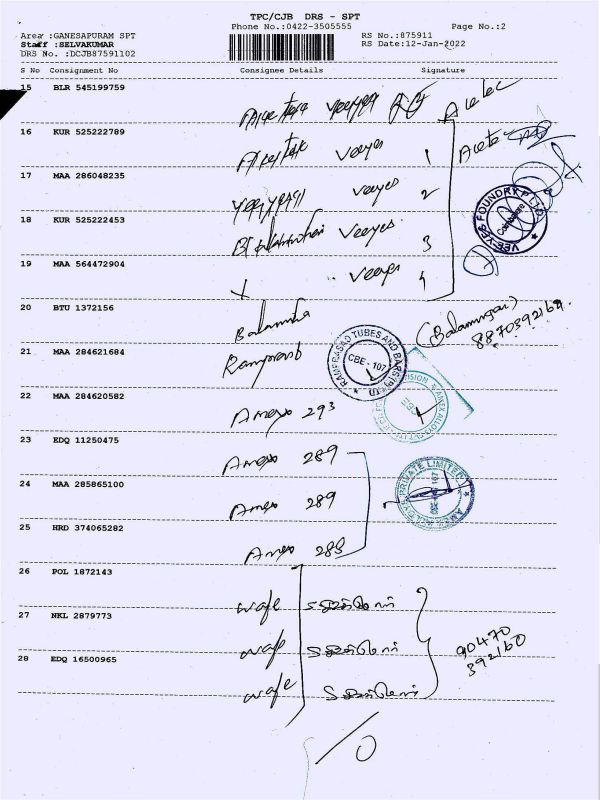 TPC/CJB DRS - SPT
Phone No.:0422-3505555 Page No.:2
Area :GANESAPURAM SPT RS No.:875911
Staff :SELVAKUMAR RS Date:12-Jan-2022
DRS No. :DCJB87591102
S No Consignment No Consignee Details Signature
15 BLR 545199759
16 KUR 525222789
Veeyes 1
17 MAA 286048235
Veeyes 2
18 KUR 525222453
Veeyes 3
VEE-YES FOUNDRY P LTD
Coimbatore
19 MAA 564472904
Veeyes 4
20 BTU 1372156
(Balamurugan)
8870392164
21 MAA 284621684
Ramprasath
RAMPRASAD TUBES AND BARS (P) LTD
CBE - 107
22 MAA 284620582
Amex 293
23 EDQ 11250475
Amex 289
24 MAA 285865100
Amex 289
PRIVATE LIMITED
25 HRD 374065282
Amex 288
26 POL 1872143
wafe
27 NKL 2879773
wafe
90470
392160
28 EDQ 16500965
wafe